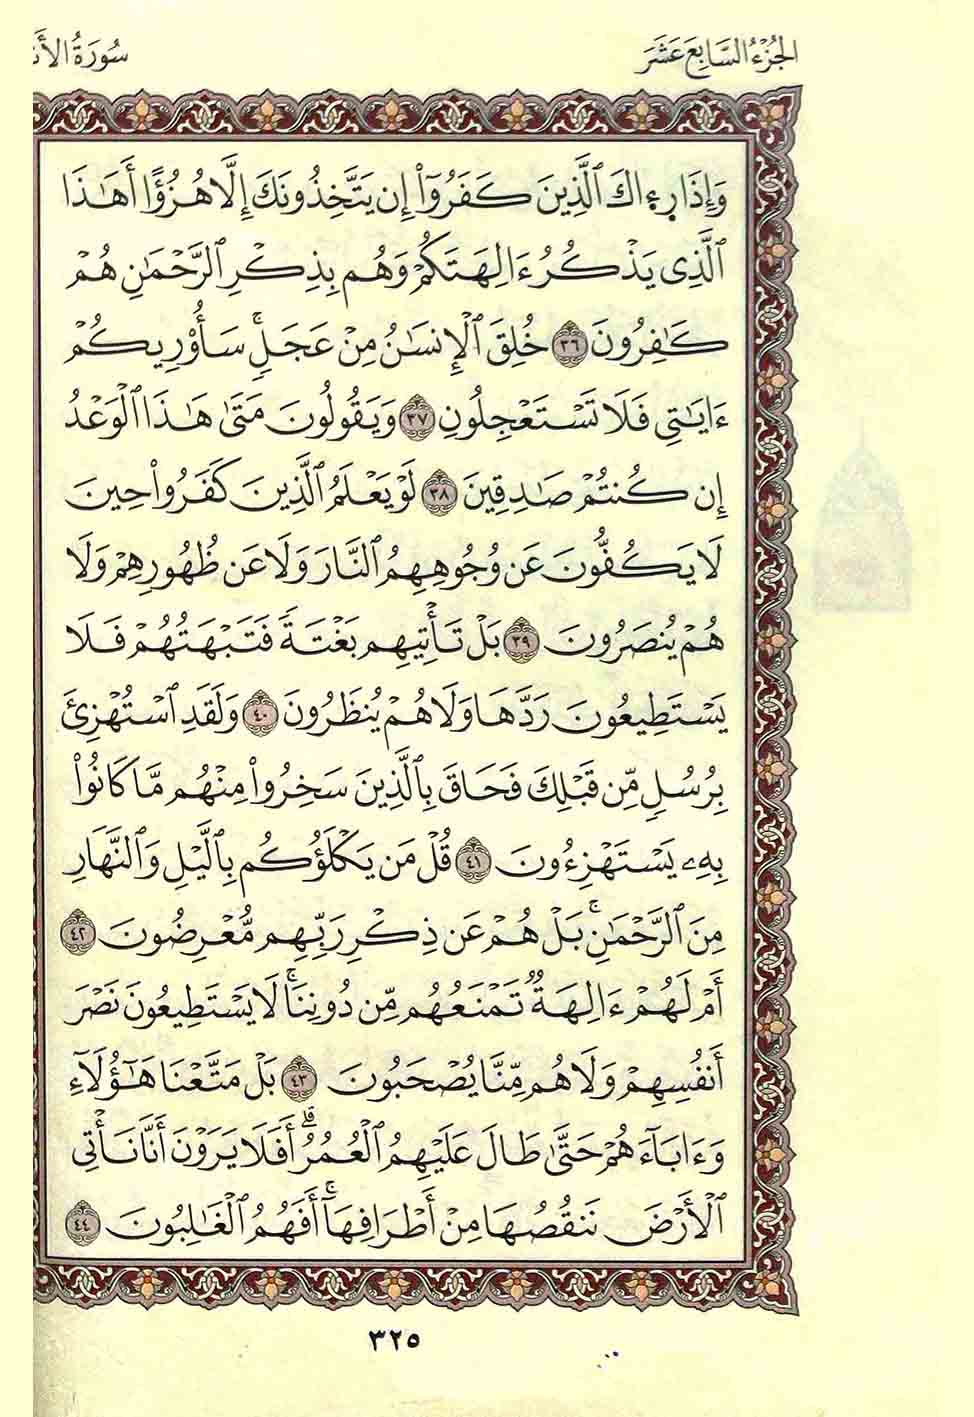 الجُزْءُ السَّابِعَ عَشَرَ
سُورَةُ الأن
وَإِذَا رَءَاكَ ٱلَّذِينَ كَفَرُوٓاْ إِن يَتَّخِذُونَكَ إِلَّا هُزُوًا أَهَٰذَا
ٱلَّذِى يَذْكُرُ ءَالِهَتَكُمْ وَهُم بِذِكْرِ ٱلرَّحْمَٰنِ هُمْ
كَٰفِرُونَ ٣٦ خُلِقَ ٱلْإِنسَٰنُ مِنْ عَجَلٍۚ سَأُوْرِيكُمْ
ءَايَٰتِى فَلَا تَسْتَعْجِلُونِ ٣٧ وَيَقُولُونَ مَتَىٰ هَٰذَا ٱلْوَعْدُ
إِن كُنتُمْ صَٰدِقِينَ ٣٨ لَوْ يَعْلَمُ ٱلَّذِينَ كَفَرُواْ حِينَ
لَا يَكُفُّونَ عَن وُجُوهِهِمُ ٱلنَّارَ وَلَا عَن ظُهُورِهِمْ وَلَا
هُمْ يُنصَرُونَ ٣٩ بَلْ تَأْتِيهِم بَغْتَةً فَتَبْهَتُهُمْ فَلَا
يَسْتَطِيعُونَ رَدَّهَا وَلَا هُمْ يُنظَرُونَ ٤٠ وَلَقَدِ ٱسْتُهْزِئَ
بِرُسُلٍ مِّن قَبْلِكَ فَحَاقَ بِٱلَّذِينَ سَخِرُواْ مِنْهُم مَّا كَانُواْ
بِهِۦ يَسْتَهْزِءُونَ ٤١ قُلْ مَن يَكْلَؤُكُم بِٱلَّيْلِ وَٱلنَّهَارِ
مِنَ ٱلرَّحْمَٰنِۚ بَلْ هُمْ عَن ذِكْرِ رَبِّهِم مُّعْرِضُونَ ٤٢
أَمْ لَهُمْ ءَالِهَةٌ تَمْنَعُهُم مِّن دُونِنَاۚ لَا يَسْتَطِيعُونَ نَصْرَ
أَنفُسِهِمْ وَلَا هُم مِّنَّا يُصْحَبُونَ ٤٣ بَلْ مَتَّعْنَا هَٰٓؤُلَآءِ
وَءَابَآءَهُمْ حَتَّىٰ طَالَ عَلَيْهِمُ ٱلْعُمُرُۗ أَفَلَا يَرَوْنَ أَنَّا نَأْتِى
ٱلْأَرْضَ نَنقُصُهَا مِنْ أَطْرَافِهَآۚ أَفَهُمُ ٱلْغَٰلِبُونَ ٤٤
٣٢٥